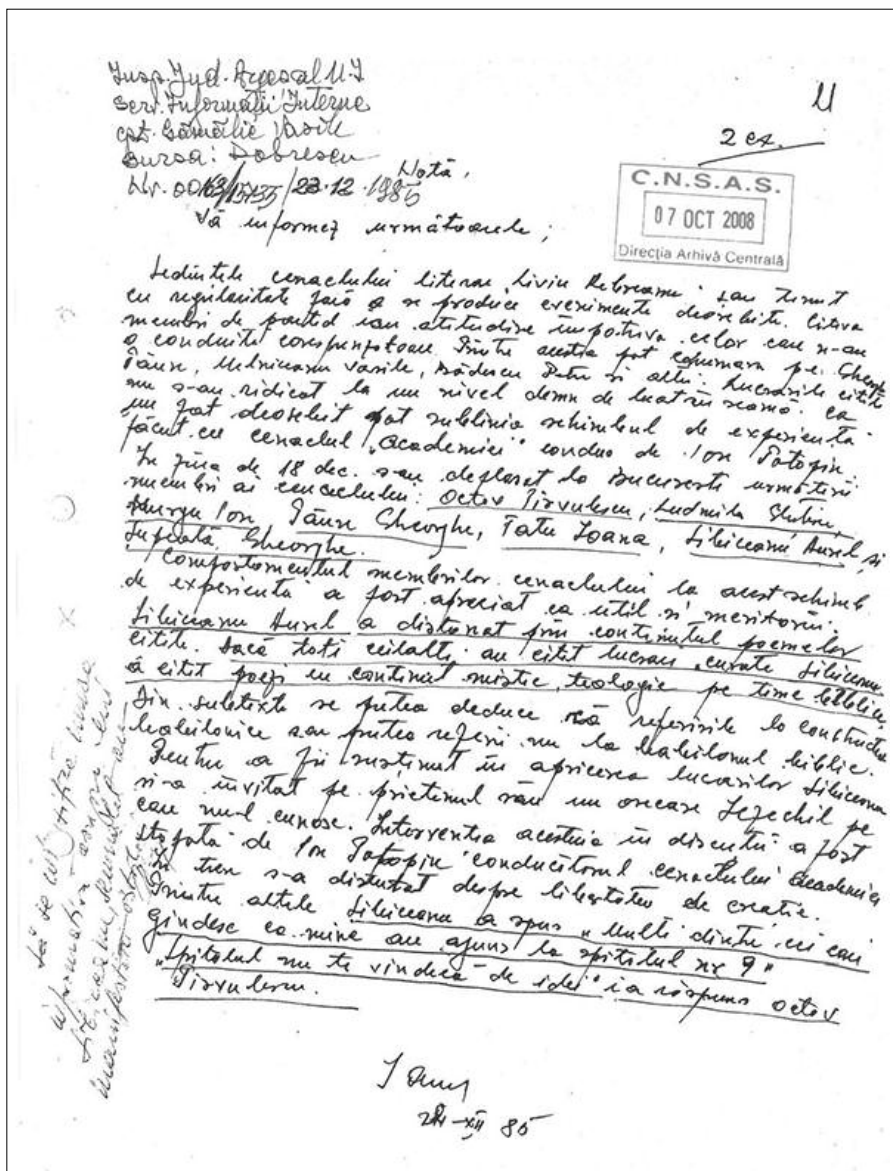 Insp. Jud. Argeș al M.I.
Serv. Informații Interne
cpt. Gămălie Vasile
Sursa: Dobrescu
Nr. 00163/ /23.12.1985
2 ex.
C.N.S.A.S.
07 OCT 2008
Direcția Arhivă Centrală
Notă,
Vă informez următoarele;
Ședințele cenaclului literar "Liviu Rebreanu" sau ținut
cu regularitate fără a se produce evenimente deosebite. Citiva
membri de partid iau atitudine împotriva celor care n-au
o conduită corespunzătoare. Printre aceștia pot enumara pe Gheorghe
Păun, Vasile, Bădescu Petre și alții. Lucrările citite
nu s-au ridicat la un nivel demn de luat în seamă. Ca
un fapt deosebit pot sublinia schimbul de experiență
făcut cu cenaclul "Academiei" condus de Ion Potopin.
În ziua de 18 dec. s-au deplasat la București următorii
membri ai cenaclului: Octav Pîrvulescu, Ludmila
Ion, Păun Gheorghe, Tatu Ioana, Sibiceanu Aurel și
Gheorghe.
Comportamentul membrilor cenaclului la acest schimb
de experiență a fost apreciat ca util și meritoriu.
Sibiceanu Aurel a distonat prin conținutul poemelor
citite. Dacă toți ceilalți au citit lucrări curate Sibiceanu
a citit poezii cu conținut mistic, teologic pe time biblice,
din subtexte se putea deduce că referirile la construcția
babilonice s-au putea referi nu la babilonul biblic.
Pentru a fi susținut în aprecerea lucrărilor Sibiceanu
și-a invitat pe prietenul său un oarecare Iezechil pe
care nu-l cunosc. Intervenția acestuia în discuții a fost
stopată de Ion Potopin conducătorul cenaclului Academiei
În tren s-a discutat despre libertatea de creație.
Printre altele Sibiceanu a spus "Mulți dintre cei care
gîndesc ca mine au ajuns la spitalul nr 9"
"Spitalul nu te vindecă de idei" i-a răspuns Octav
Pîrvulescu.
XII 85